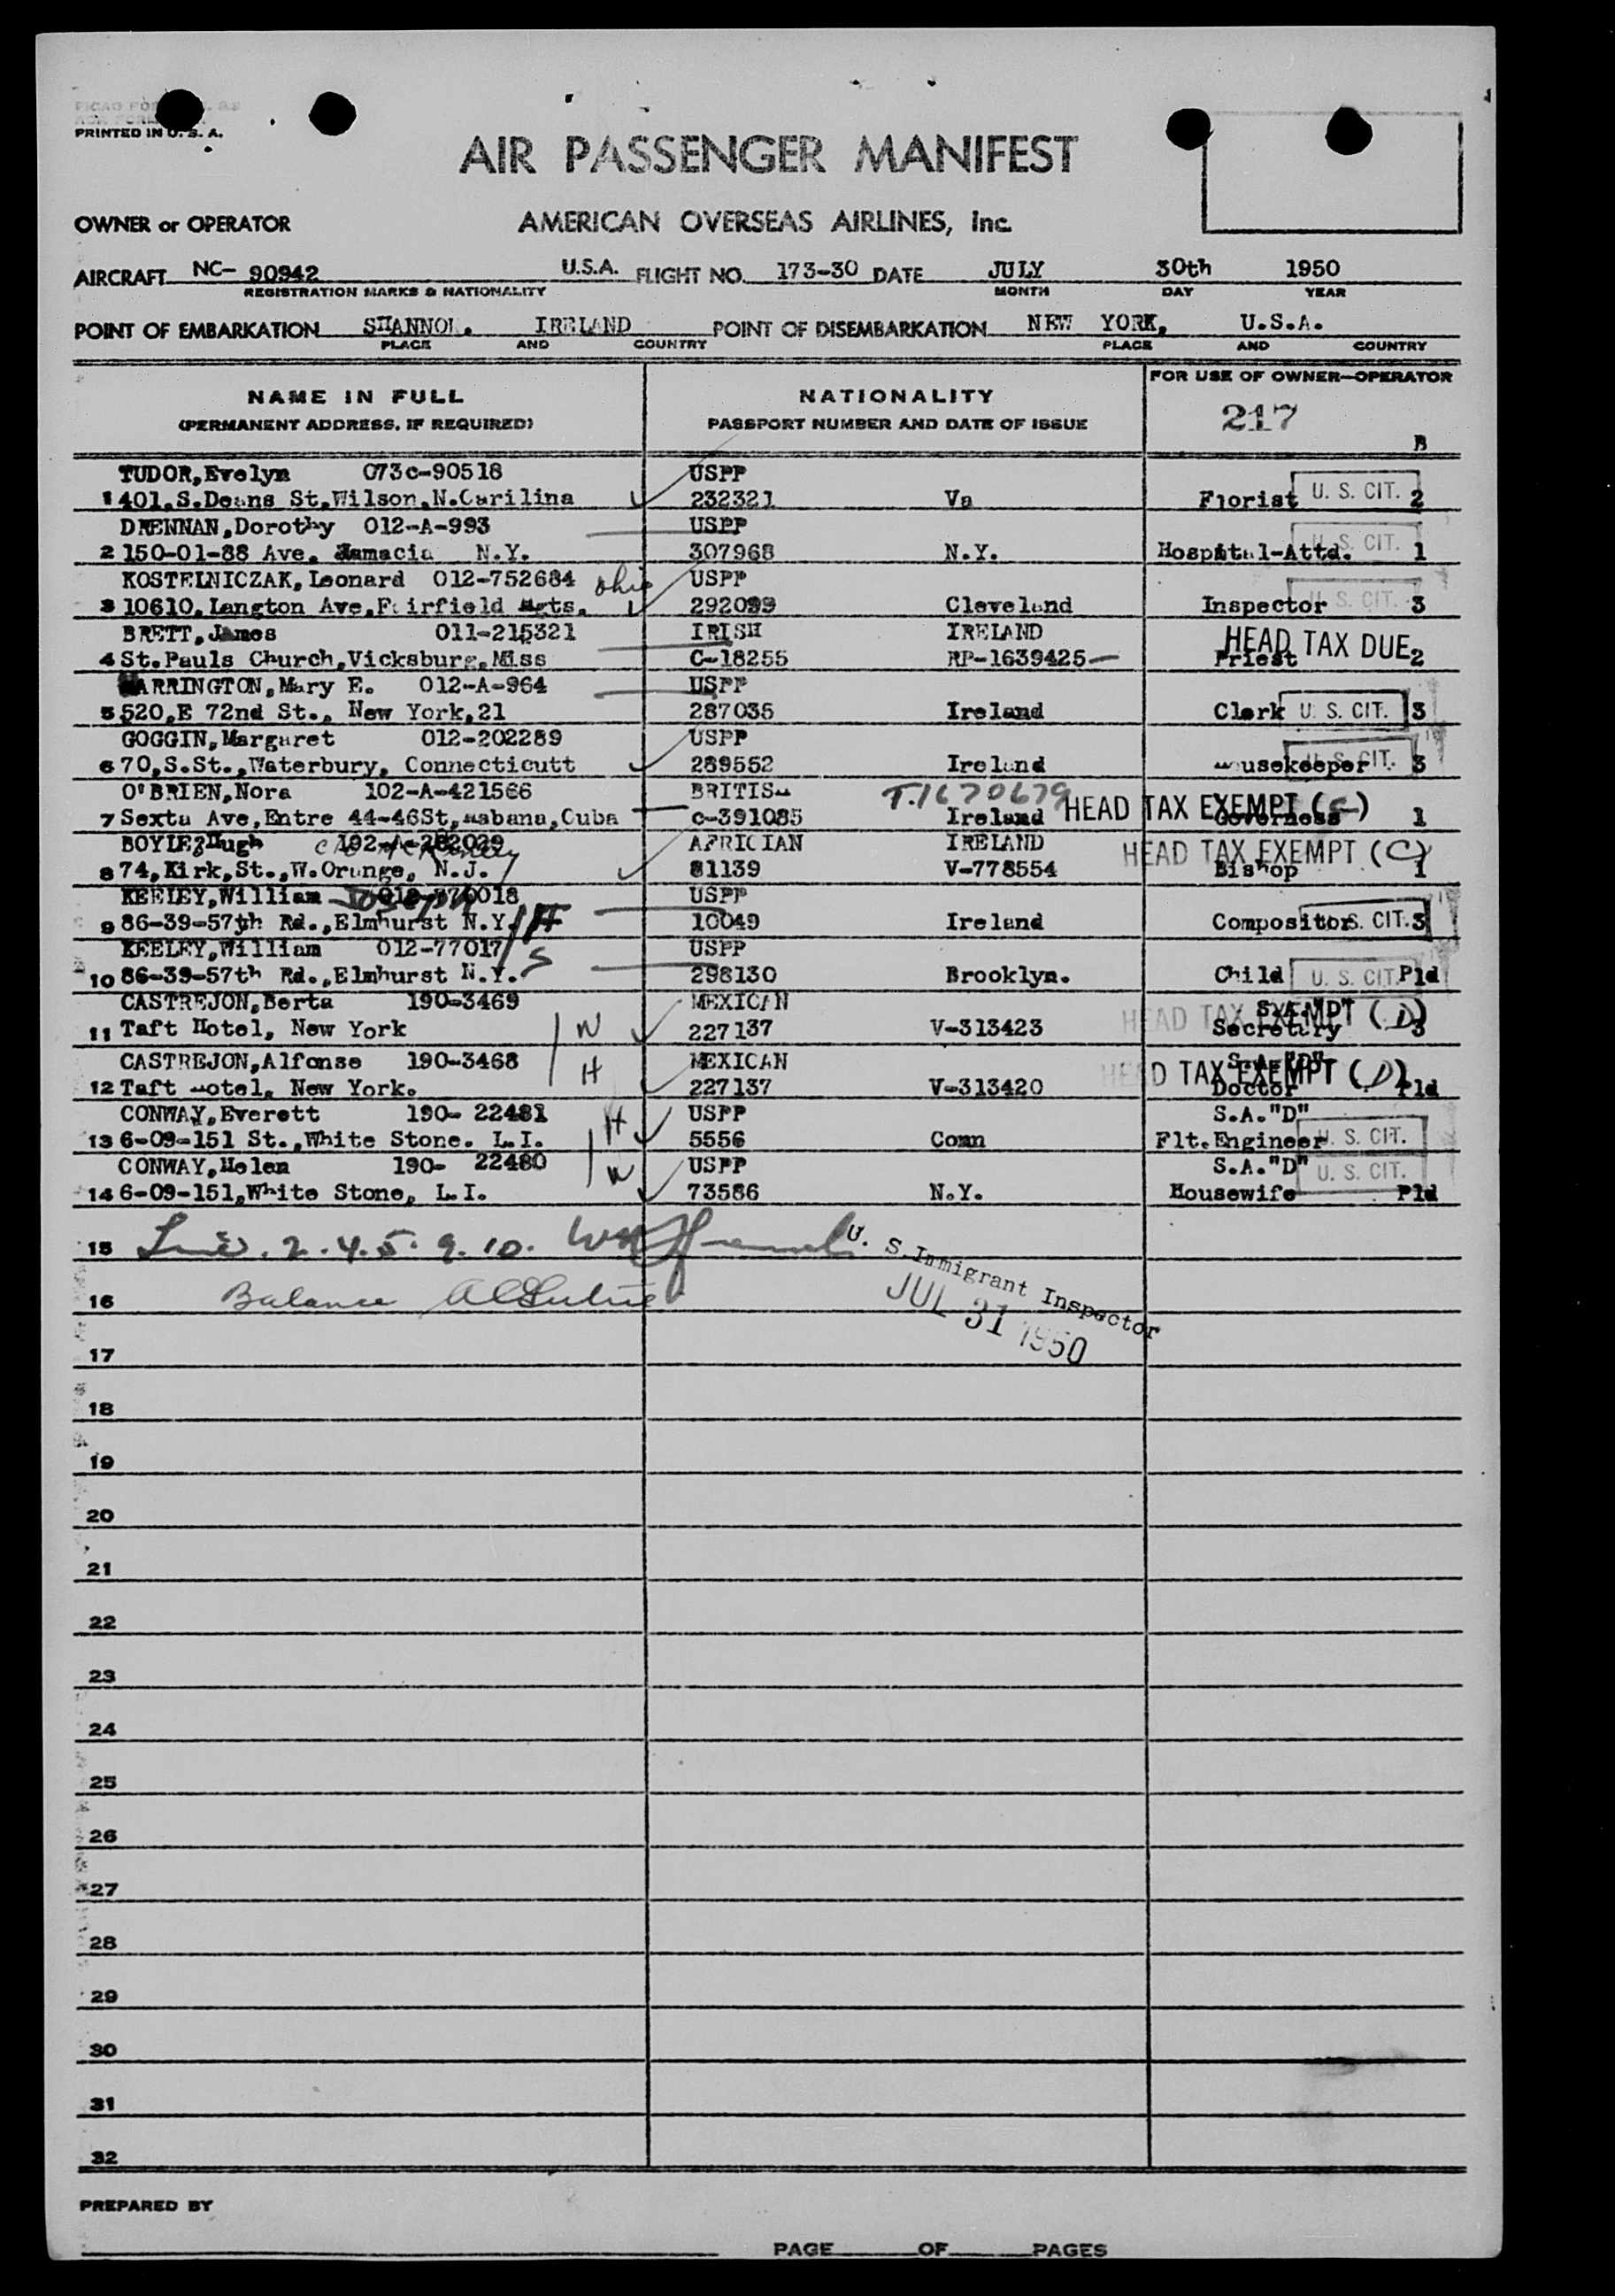 PRINTED IN U. S. A.
AIR PASSENGER MANIFEST
OWNER or OPERATOR AMERICAN OVERSEAS AIRLINES, Inc.
AIRCRAFT NC- 90942 U.S.A. FLIGHT NO. 173-30 DATE JULY 30th 1950
REGISTRATION MARKS & NATIONALITY MONTH DAY YEAR
POINT OF EMBARKATION SHANNON. IRELAND POINT OF DISEMBARKATION NEW YORK, U.S.A.
PLACE AND COUNTRY PLACE AND COUNTRY
FOR USE OF OWNER-OPERATOR
NAME IN FULL NATIONALITY
(PERMANENT ADDRESS, IF REQUIRED) PASSPORT NUMBER AND DATE OF ISSUE 217
B
TUDOR,Evelyn 073c-90518 USPP
1 401,S.Deans St,Wilson,N.Carilina 232321 Va Florist U. S. CIT. 2
DRENNAN,Dorothy 012-A-993 USPP
2 150-01-88 Ave. Jamacia N.Y. 307968 N.Y. Hospital-Attd. U. S. CIT. 1
KOSTELNICZAK,Leonard 012-752684 Ohio USPP
3 10610,Langton Ave,Fairfield Hgts. 292099 Cleveland Inspector U. S. CIT. 3
BRETT,James 011-215321 IRISH IRELAND HEAD TAX DUE
4 St.Pauls Church,Vicksburg,Miss C-18255 RP-1639425 Priest 2
HARRINGTON,Mary E. 012-A-964 USPP
5 520,E 72nd St., New York,21 287035 Ireland Clerk U. S. CIT. 3
GOGGIN,Margaret 012-202289 USPP
6 70,S.St.,Waterbury, Connecticutt 289552 Ireland Housekeeper U. S. CIT. 3
O'BRIEN,Nora 102-A-421566 BRITISH T.1670679 HEAD TAX EXEMPT (C)
7 Sexta Ave,Entre 44-46St,Habana,Cuba c-391085 Ireland Governess 1
BOYLE,Hugh 102-A-282029 AFRICIAN IRELAND HEAD TAX EXEMPT (C)
8 74,Kirk,St.,W.Orange, N.J. 81139 V-778554 Bishop 1
KEELEY,William Joseph USPP
9 86-39-57th Rd.,Elmhurst N.Y. F 10049 Ireland Compositor U. S. CIT. 3
KEELEY,William 012-77017 USPP
10 86-39-57th Rd.,Elmhurst N.Y. S 298130 Brooklyn. Child U. S. CIT. Pld
CASTREJON,Berta 190-3469 MEXICAN S.A."D" HEAD TAX EXEMPT (D)
11 Taft Hotel, New York W 227137 V-313423 Secretary 3
CASTREJON,Alfonse 190-3468 H MEXICAN S.A."D" HEAD TAX EXEMPT (D)
12 Taft Hotel, New York. 227137 V-313420 Doctor Pld
CONWAY,Everett 190- 22481 H USPP S.A."D"
13 6-09-151 St.,White Stone. L.I. 5556 Conn Flt.Engineer U. S. CIT.
CONWAY,Helen 190- 22480 W USPP S.A."D" U. S. CIT.
14 6-09-151,White Stone, L.I. 73586 N.Y. Housewife Pld
15 2. 4. 5. 9. 10.
U. S. Immigrant Inspector
16 Balance
JUL 31 1950
17
18
19
20
21
22
23
24
25
26
27
28
29
30
31
32
PREPARED BY
PAGE OF PAGES